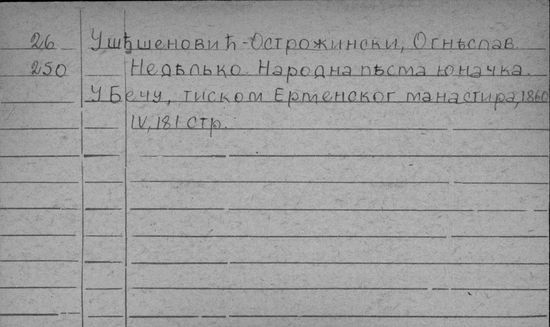 26 Утѣшеновић-Острожински, Огнѣслав.
250 Недѣлько. Народна пѣсма юначка.
У Бечу, тиском Ерменског манастира, 1860
IV, 181 стр.